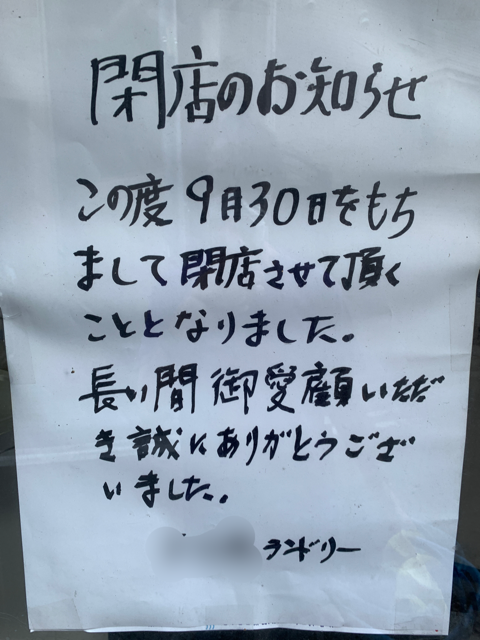 閉店のお知らせ
この度9月30日をもち
まして閉店させて頂く
こととなりました。
長い間御愛顧いただ
き誠にありがとうござ
いました。
ランドリー